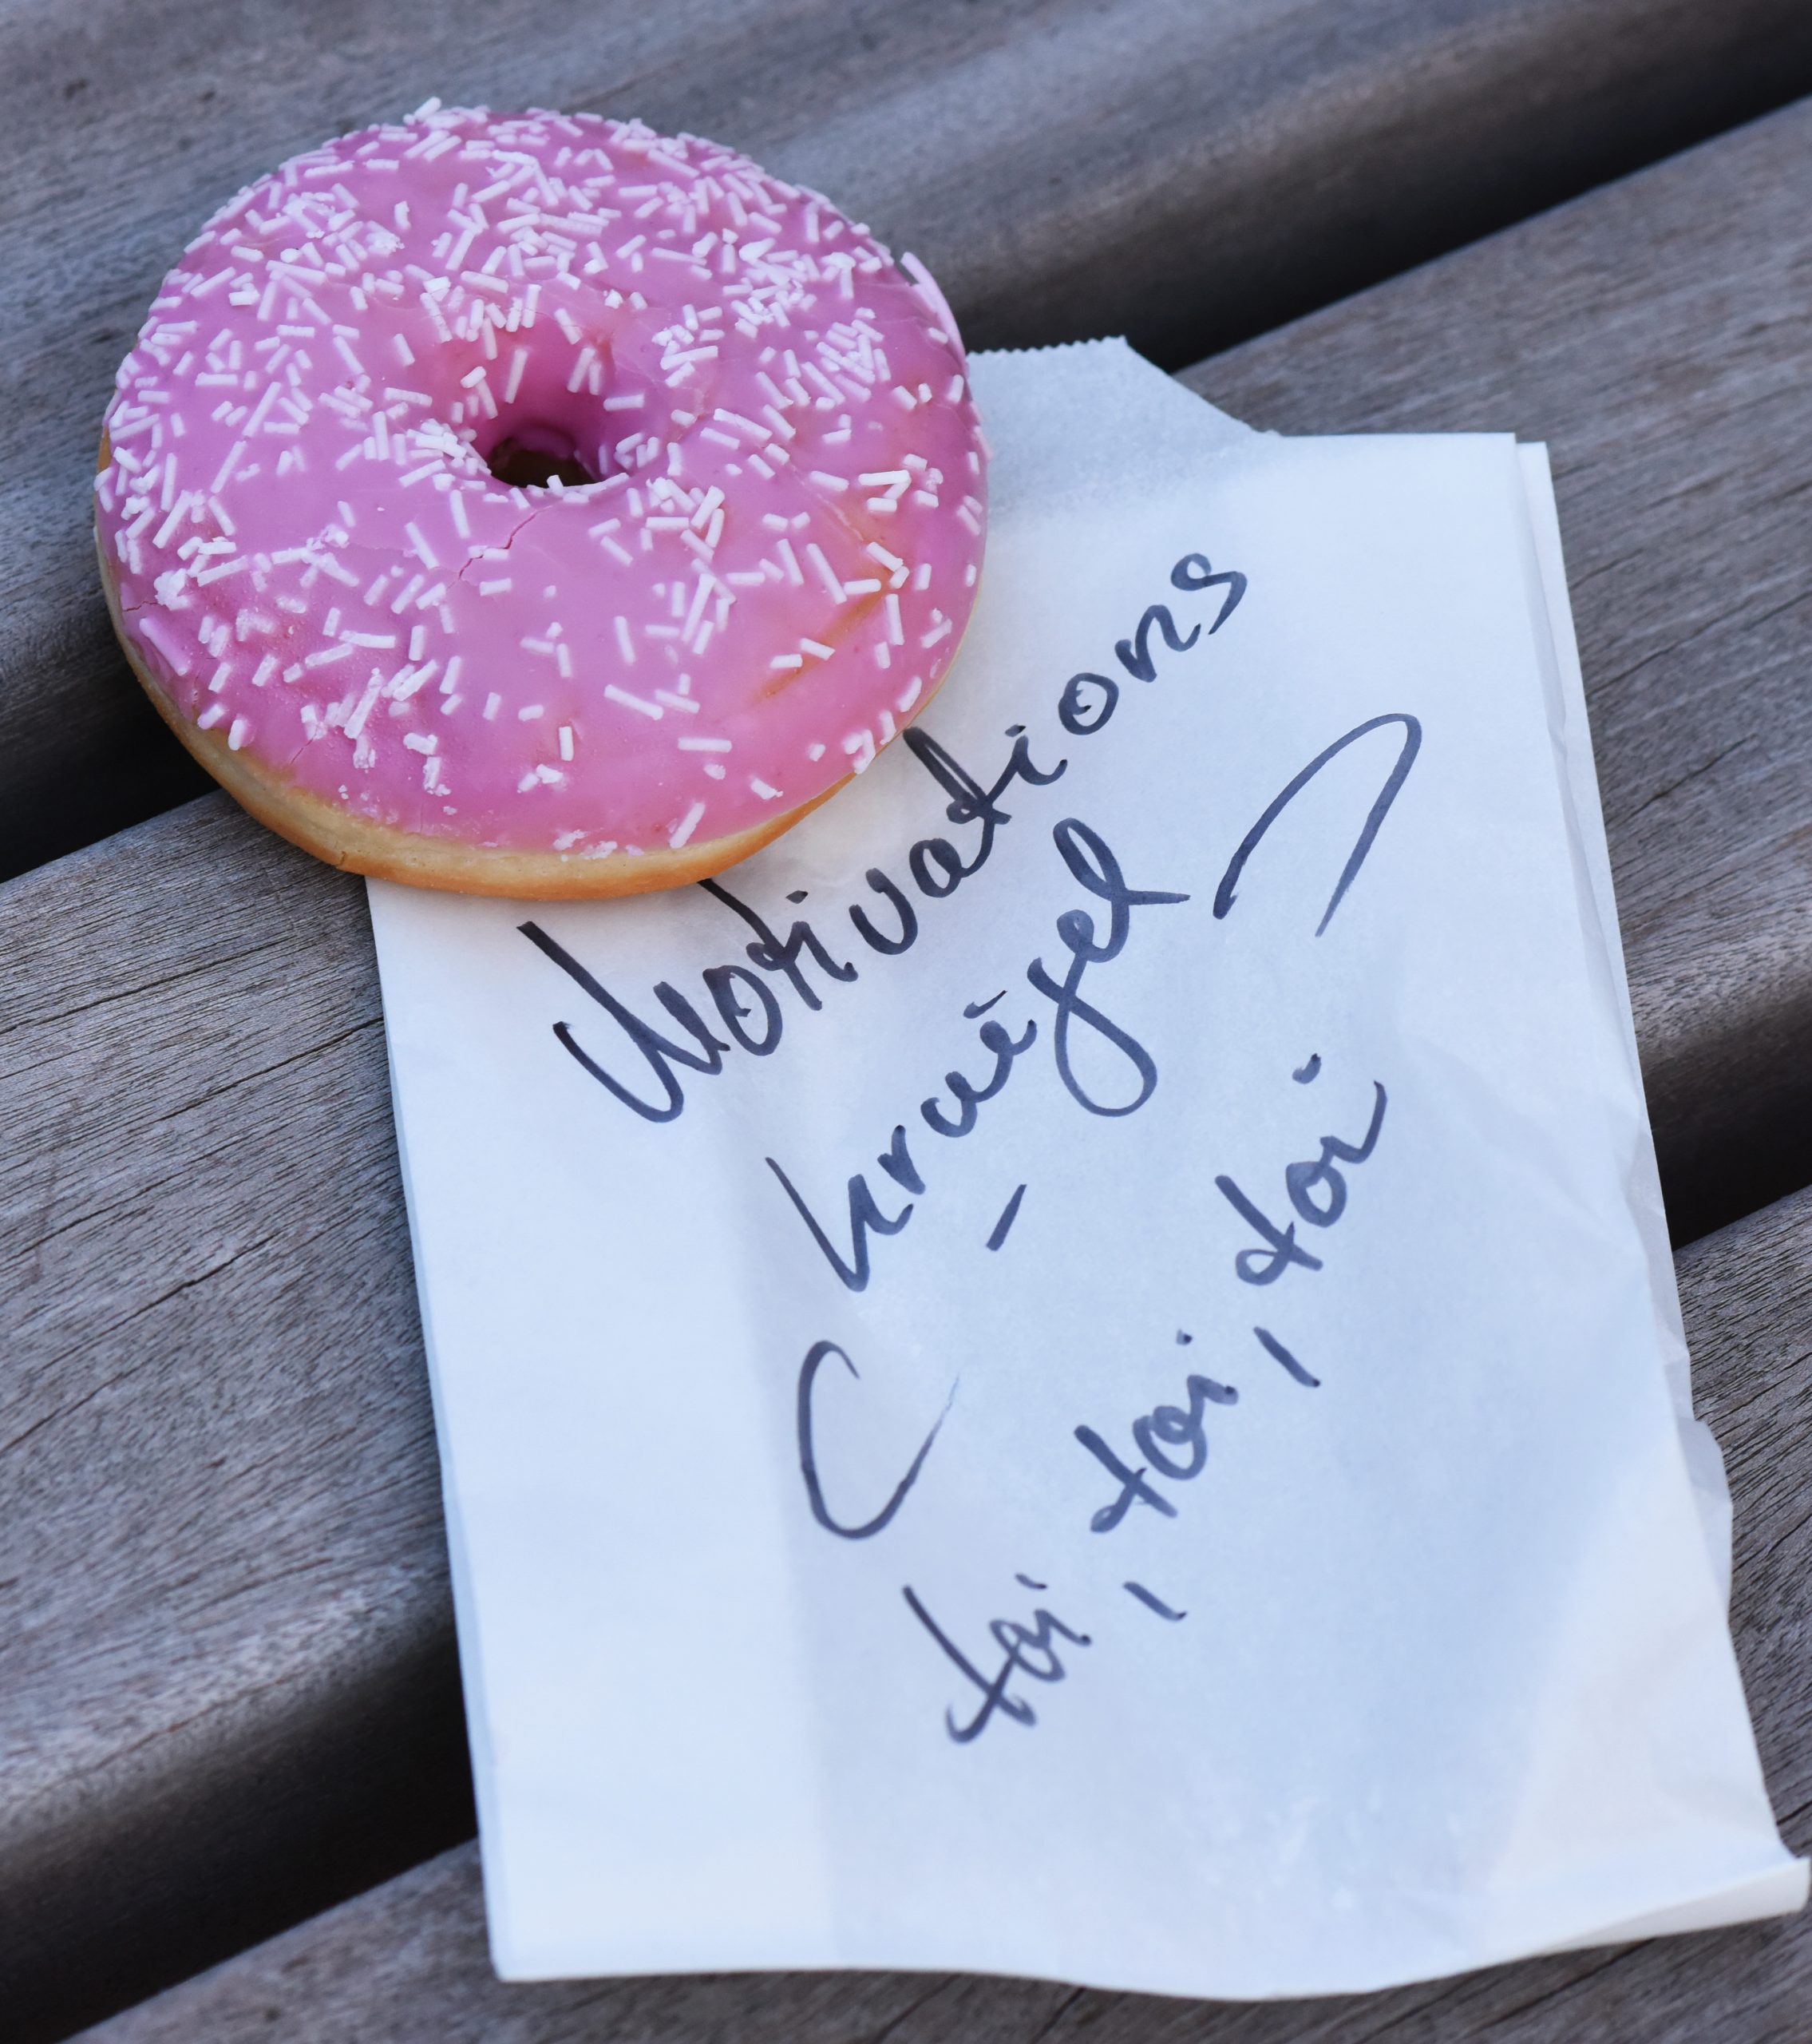 Motivations
kringel
toi, toi, toi